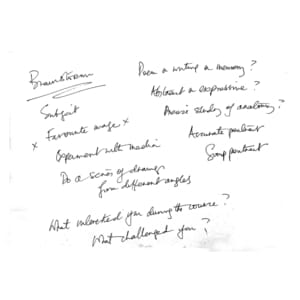 Brainstorm
Subject
x Favourite image x
Experiment with media
Do a series of drawings
from different angles
Poem a writing a memory?
Abstract a expressive?
Precise study of anatomy?
Accurate portrait
Group portrait
What interested you during the course?
What challenged you?